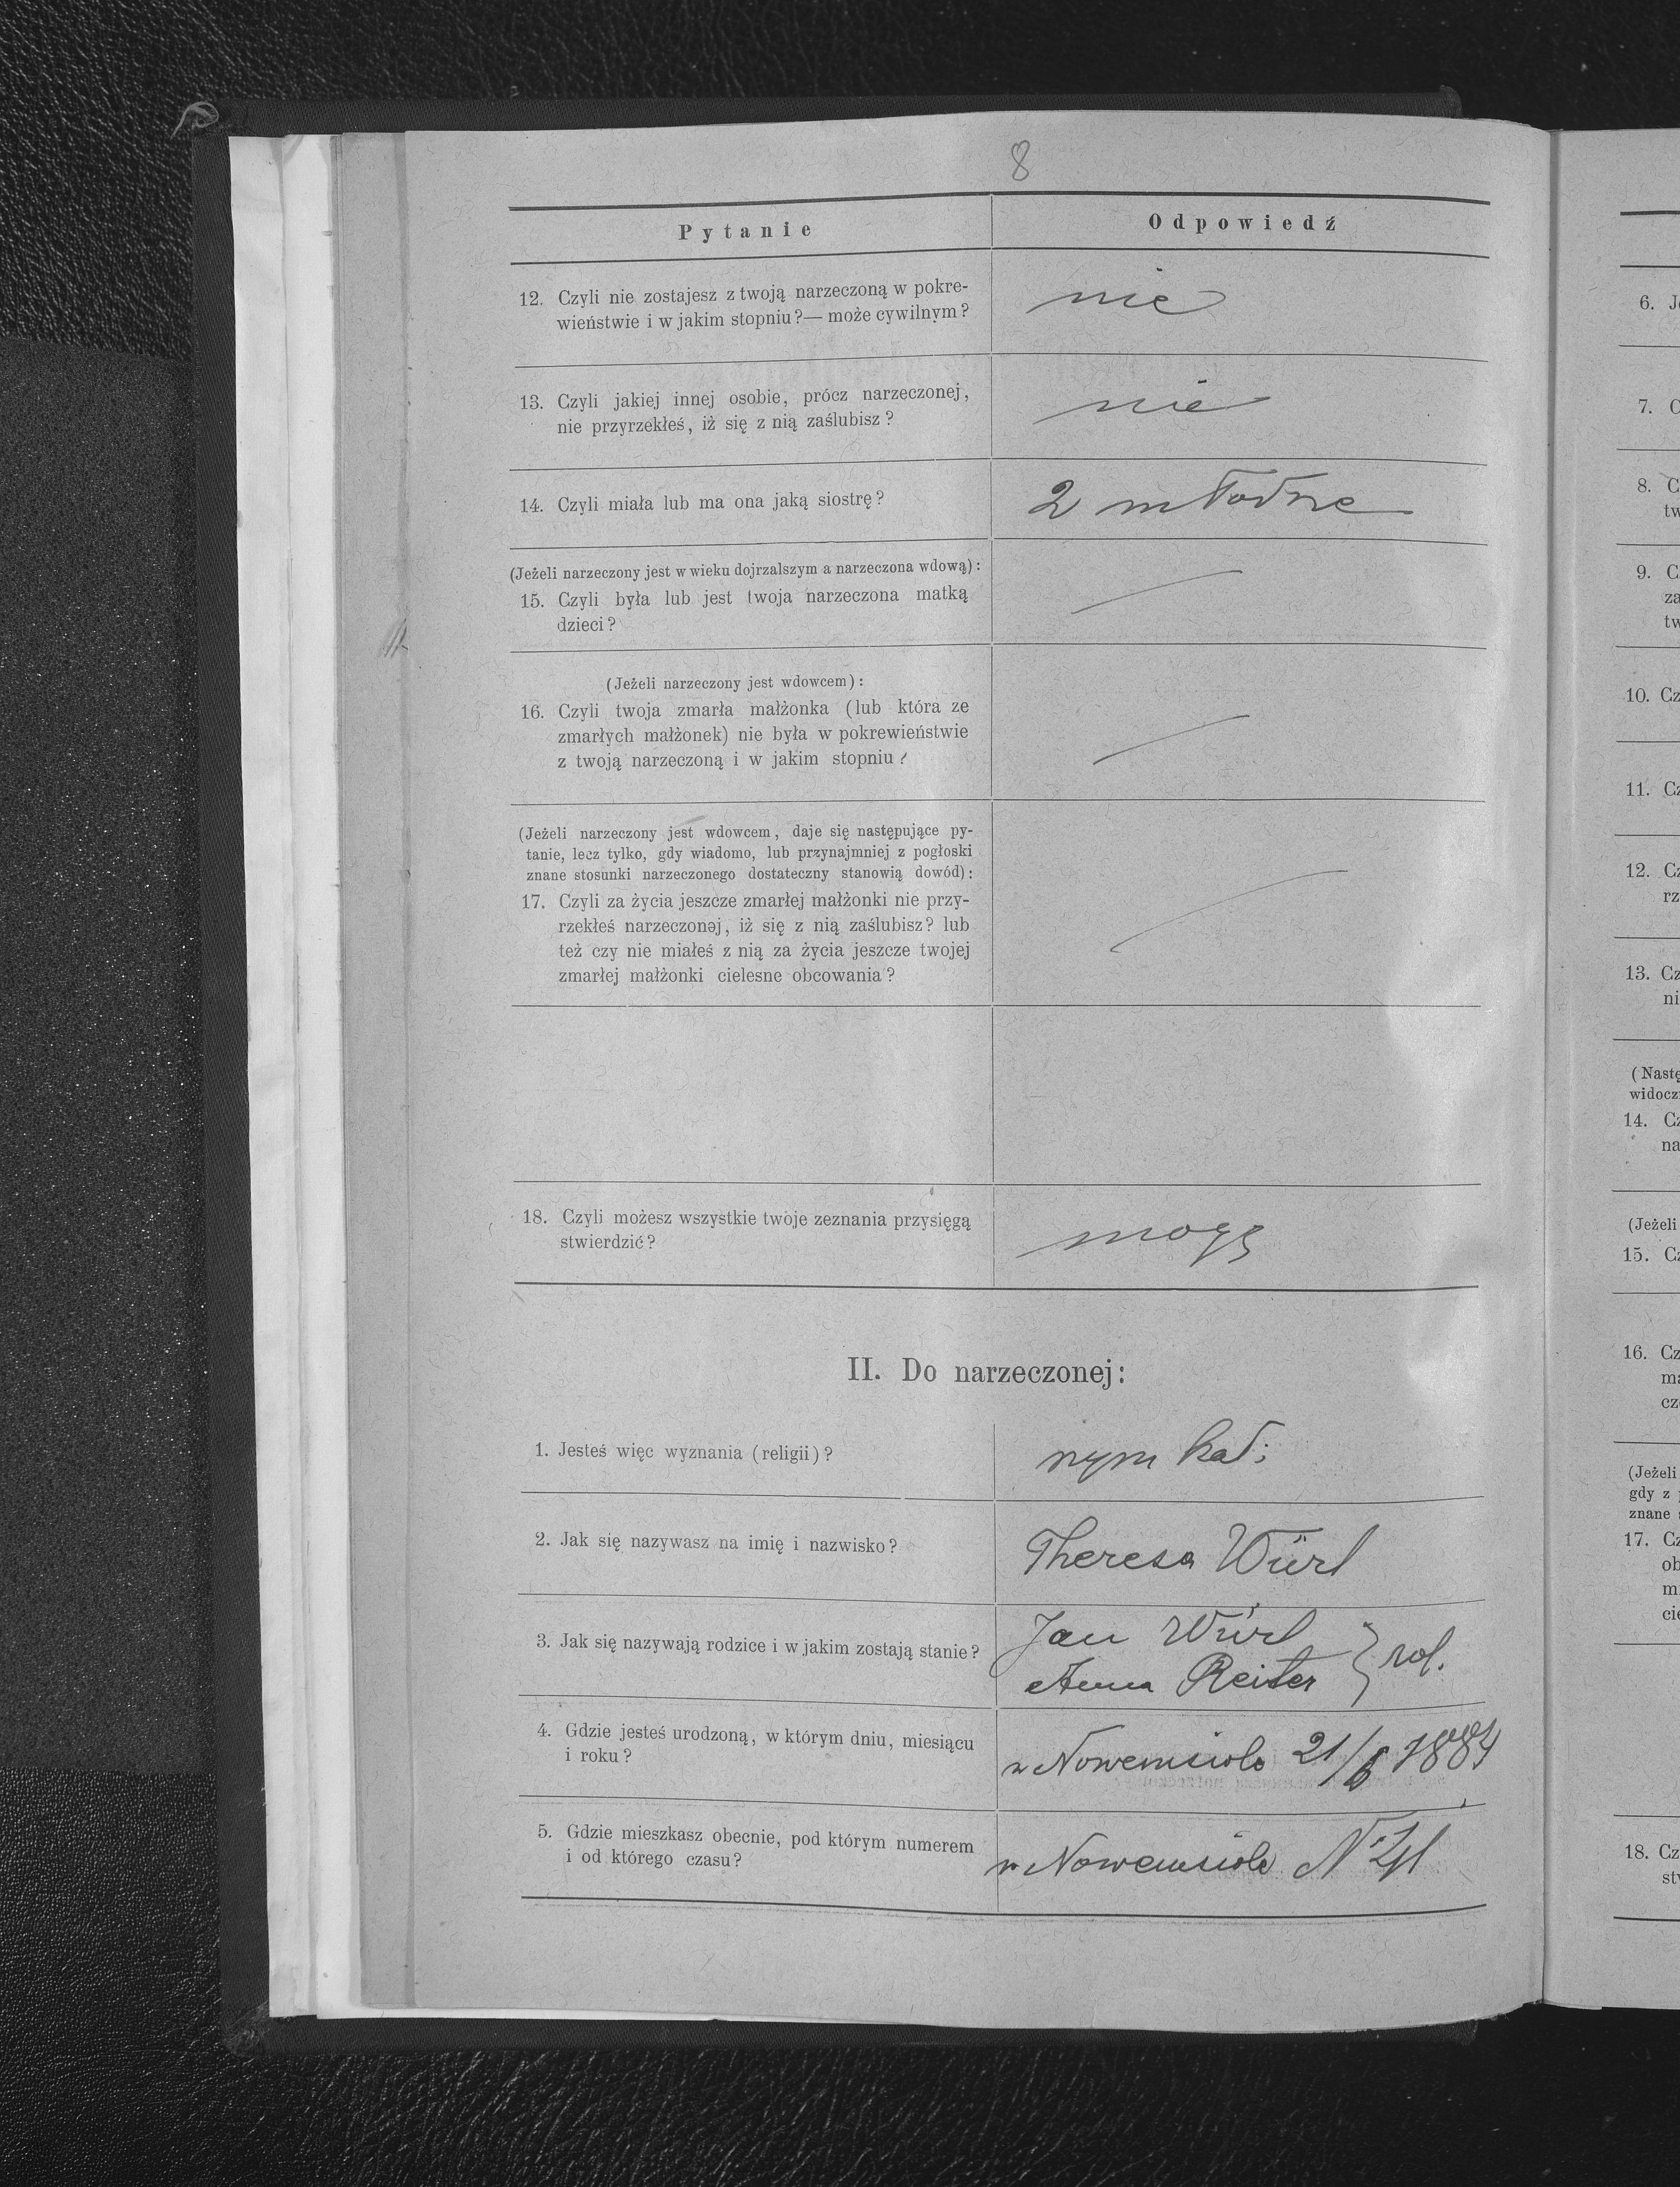 8
Pytanie
Odpowiedź
12. Czyli nie zostajesz z twoją narzeczoną w pokre-
wieństwie i w jakim stopniu?— może cywilnym?
nie
13. Czyli jakiej innej osobie, prócz narzeczonej,
nie przyrzekłeś, iż się z nią zaślubisz?
nie
14. Czyli miała lub ma ona jaką siostrę?
2
(Jeżeli narzeczony jest w wieku dojrzalszym a narzeczona wdową):
15. Czyli była lub jest twoja narzeczona matką
dzieci?
(Jeżeli narzeczony jest wdowcem):
16. Czyli twoja zmarła małżonka (lub która ze
zmarłych małżonek) nie była w pokrewieństwie
z twoją narzeczoną i w jakim stopniu?
(Jeżeli narzeczony jest wdowcem, daje się następujące py-
tanie, lecz tylko, gdy wiadomo, lub przynajmniej z pogłoski
znane stosunki narzeczonego dostateczny stanowią dowód):
17. Czyli za życia jeszcze zmarłej małżonki nie przy-
rzekłeś narzeczonej, iż się z nią zaślubisz? lub
też czy nie miałeś z nią za życia jeszcze twojej
zmarłej małżonki cielesne obcowania?
18. Czyli możesz wszystkie twoje zeznania przysięgą
stwierdzić?
mogę
II. Do narzeczonej:
1. Jesteś więc wyznania (religii)?
rzym kat:
2. Jak się nazywasz na imię i nazwisko?
Theresa Würl
3. Jak się nazywają rodzice i w jakim zostają stanie?
Jan Würl
Anna Reiter } rol.
4. Gdzie jesteś urodzoną, w którym dniu, miesiącu
i roku?
w Nowemsiole 21/6 1884
5. Gdzie mieszkasz obecnie, pod którym numerem
i od którego czasu?
w Nowemsiole N
6. J
7. C
8. C
tw
9. C
za
tw
10. Cz
11. Cz
12. Cz
rz
13. Cz
ni
(Nastę
widocz
14. Cz
na
(Jeżeli
15. Cz
16. Cz
ma
cz
(Jeżeli
gdy z
znane
17. Cz
ob
m
cie
18. Cz
st